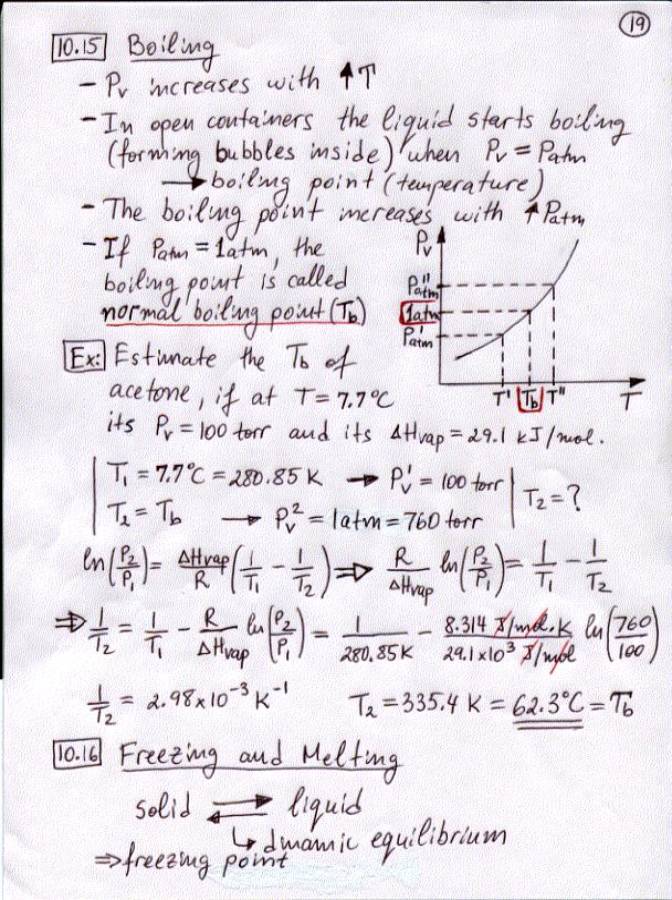 19
10.15 Boiling
- Pv increases with ↑T
- In open containers the liquid starts boiling
(forming bubbles inside) when Pv = Patm
→ boiling point (temperature)
- The boiling point increases with ↑Patm
- If Patm = 1atm, the
boiling point is called
normal boiling point (Tb)
Pv
P"atm
1atm
P'atm
T' Tb T" T
Ex: Estimate the Tb of
acetone, if at T = 7.7°C
its Pv = 100 torr and its ΔHvap = 29.1 kJ/mol.
T₁ = 7.7°C = 280.85 K → Pv' = 100 torr
T₂ = Tb → Pv² = 1atm = 760 torr
T₂ = ?
ln(P₂/P₁) = ΔHvap/R (1/T₁ - 1/T₂) ⇒ R/ΔHvap ln(P₂/P₁) = 1/T₁ - 1/T₂
⇒ 1/T₂ = 1/T₁ - R/ΔHvap ln(P₂/P₁) = 1/280.85K - 8.314 J/mol.K/29.1x10³ J/mol ln(760/100)
1/T₂ = 2.98x10⁻³ K⁻¹ T₂ = 335.4 K = 62.3°C = Tb
10.16 Freezing and Melting
solid ⇄ liquid
↳ dinamic equilibrium
⇒ freezing point